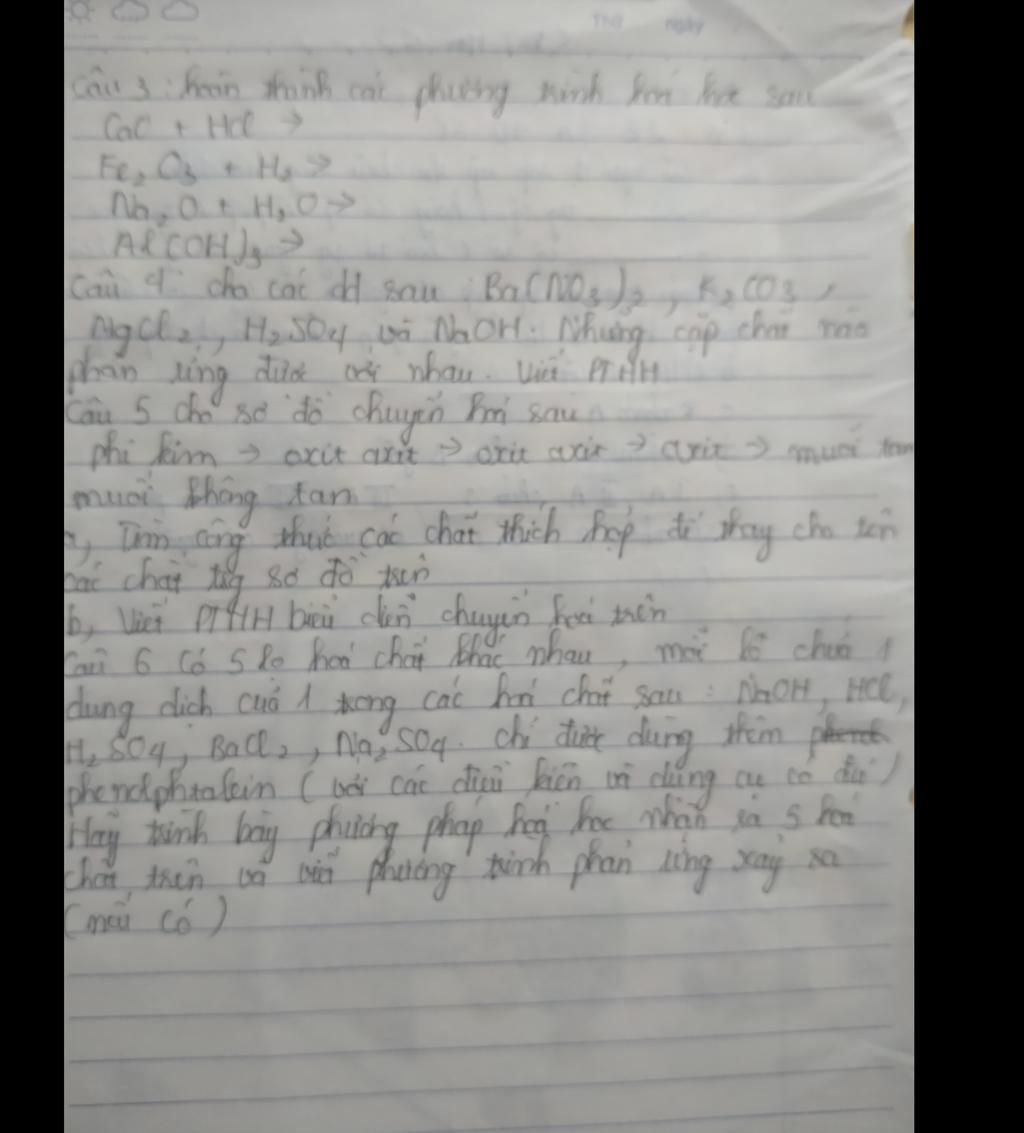 Thứ ngày
Câu 3 : hoàn thành các phương trình hoá học sau
CaC + HCl →
Fe2O3 + H2 →
Na2O + H2O →
Al(OH)3 →
Câu 4 cho các dd sau : Ba(NO3)2, K2CO3,
MgCl2, H2SO4 và NaOH. Những cặp chất nào
phản ứng được với nhau. Viết PTHH
Câu 5 cho sơ đồ chuyển hoá sau
phi kim → oxit axit → oxit axit → axit → muối tan
muối không tan
a, Tìm công thức các chất thích hợp để thay cho tên
các chất tng sơ đồ trên
b, Viết PTHH biểu diễn chuyển hoá trên
Câu 6 Có 5 lọ hoá chất khác nhau, mỗi lọ chứa 1
dung dịch của 1 trong các hoá chất sau : NaOH, HCl,
H2SO4, BaCl2, Na2SO4. Chỉ được dùng thêm
phenolphtalein (với các điều kiện và dụng cụ có đủ)
Hãy trình bày phương pháp hoá học nhận ra 5 hoá
chất trên và viết phương trình phản ứng xảy ra
(nếu có)